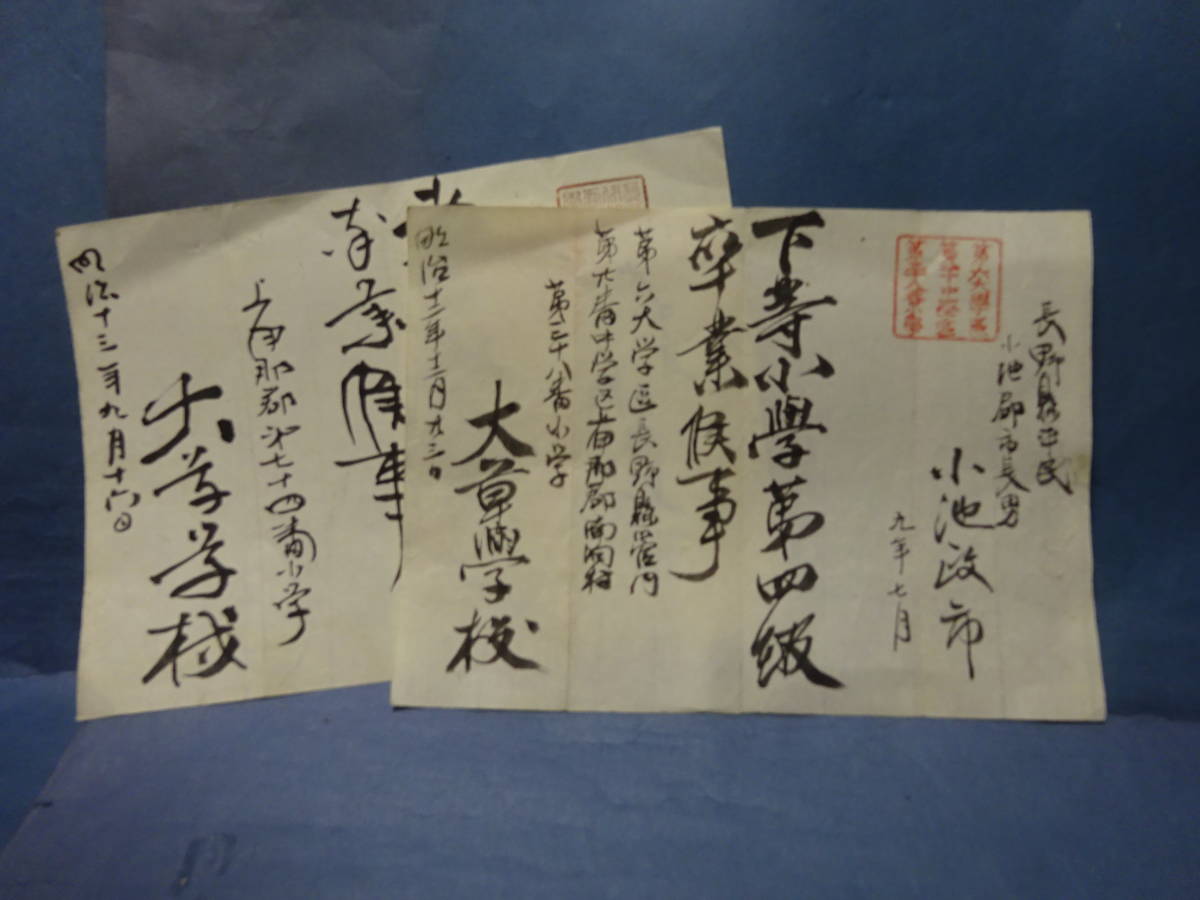 長野縣平民
小池郡市長男
小池政市
九年七月
下等小學第四級
卒業候事
第六大学区長野縣管内
第十八番中学区上伊那郡南向村
第三十八番小学
大草學校
明治十二年十二月廿三日
卒業候事
上伊那郡第七十四番小学
大草学校
明治十三年九月十六日